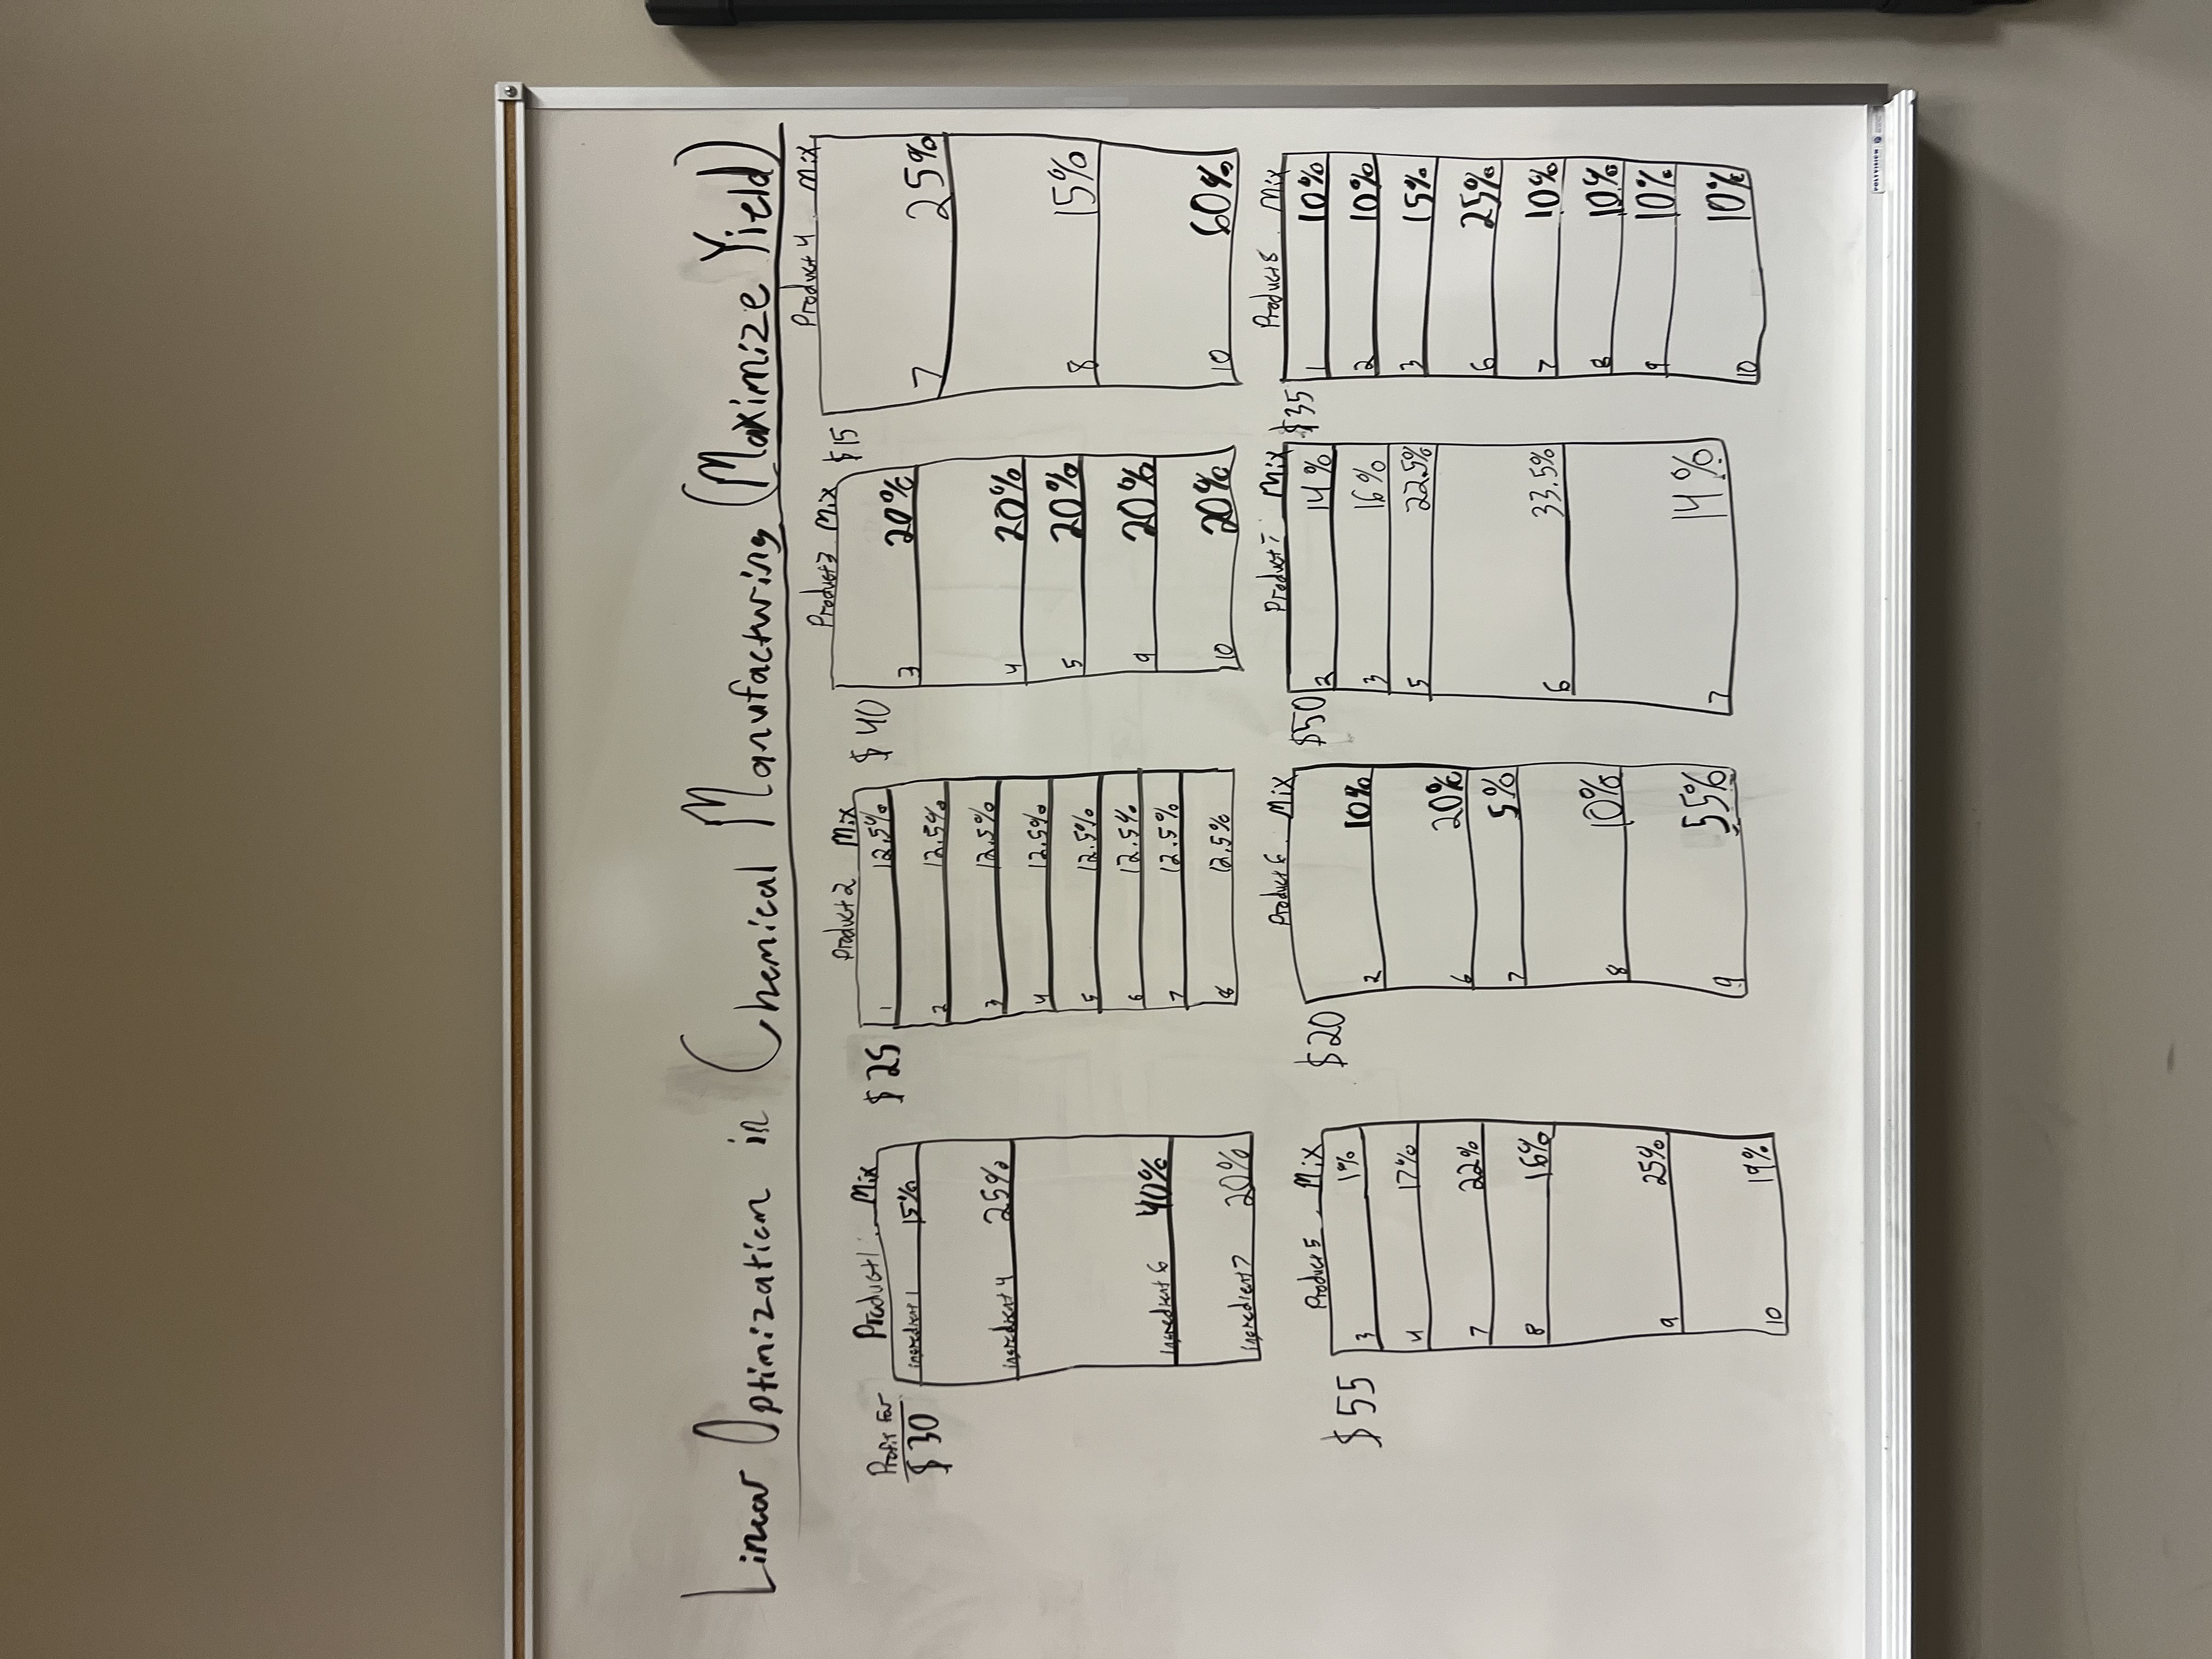 Linear Optimization in Chemical Manufacturing (Maximize Yield)
Profit For
$30
Product 1 Mix
ingredient 1 15%
ingredient 4 25%
ingredient 6 40%
ingredient 7 20%
$25
Product 2 Mix
1 12.5%
2 12.5%
3 12.5%
4 12.5%
5 12.5%
6 12.5%
7 12.5%
8 12.5%
$40
Product 3 Mix
3 20%
4 20%
5 20%
9 20%
10 20%
$15
Product 4 Mix
7 25%
8 15%
10 60%
$55
Product 5 Mix
3 1%
4 17%
7 22%
8 16%
9 25%
10 19%
$20
Product 6 Mix
2 10%
6 20%
7 5%
8 10%
9 55%
$50
Product 7 Mix
2 14%
3 16%
5 22.5%
6 33.5%
7 14%
$35
Product 8 Mix
1 10%
2 10%
3 15%
6 25%
7 10%
8 10%
9 10%
10 10%
POLYVISION